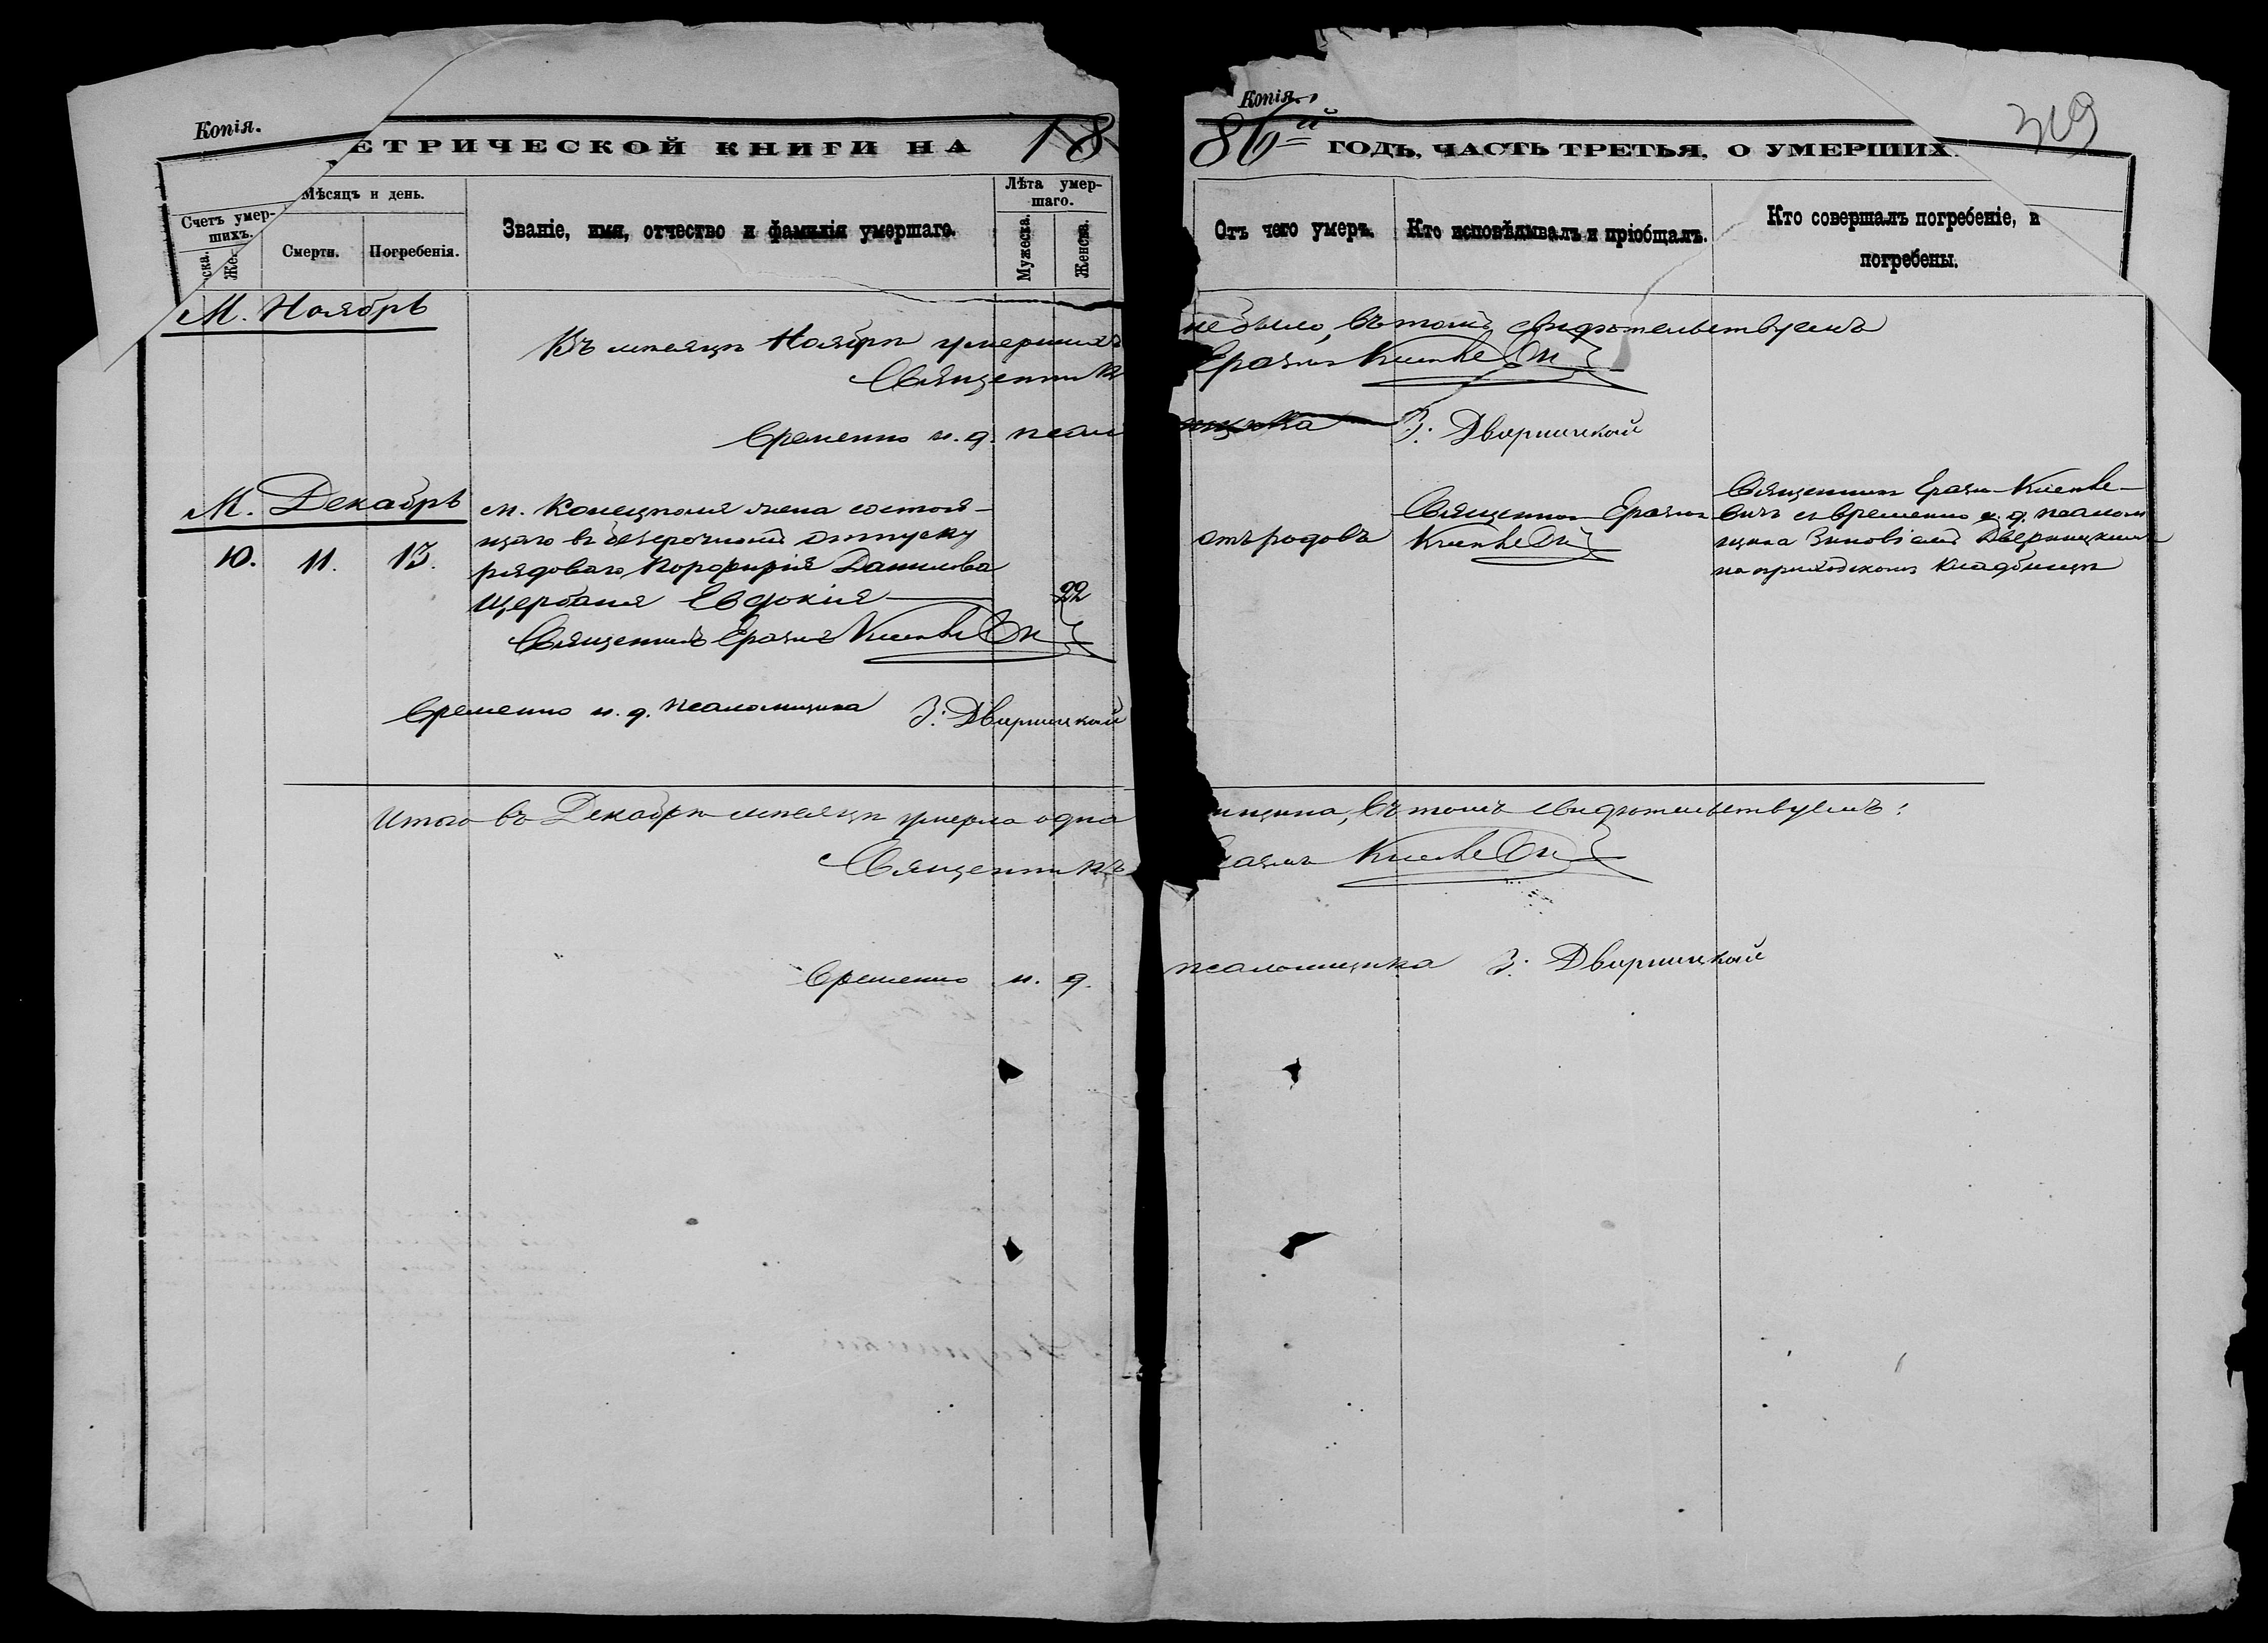 Копія.
Копія.
319
ЕТРИЧЕСКОЙ КНИГИ НА 18
86й ГОДЪ, ЧАСТЬ ТРЕТЬЯ, О УМЕРШИХ
Счетъ умер-
шихъ.
ска.
Же
Мѣсяцъ и день.
Смерти.
Погребенія.
Званіе, имя, отчество и фамилія умершаго.
Лѣта умер-
шаго.
Мужеска.
Женска.
Отъ чего умеръ.
Кто исповѣдывалъ и пріобщалъ.
Кто совершалъ погребеніе, и
погребены.
М. Ноябрь
Въ мѣсяцѣ Ноябрѣ умершихъ
не было, въ томъ свидѣтельствуемъ
Священник
Еразмъ
Временно и. д. псал
мщика З. Дверницкий
М. Декабрь
10. 11. 13.
м. Конецполя жена состоя-
щаго въ безсрочномъ отпуску
рядоваго Порфирія Данилова
Щербаня Евдокія
22
Священникъ Еразмъ
Временно и. д. псаломщика З. Дверницкий
отъ родовъ
Священник Еразмъ
Священник Еразм
вичъ съ временно и. д. псалом
щика Зиновіемъ Дверницкимъ
на приходскомъ кладбищѣ
Итого въ Декабрѣ мѣсяцѣ умерла одна
нщина, въ томъ свидѣтельствуемъ:
Священникъ
размъ
Временно и. д.
псаломщика З. Дверницкий